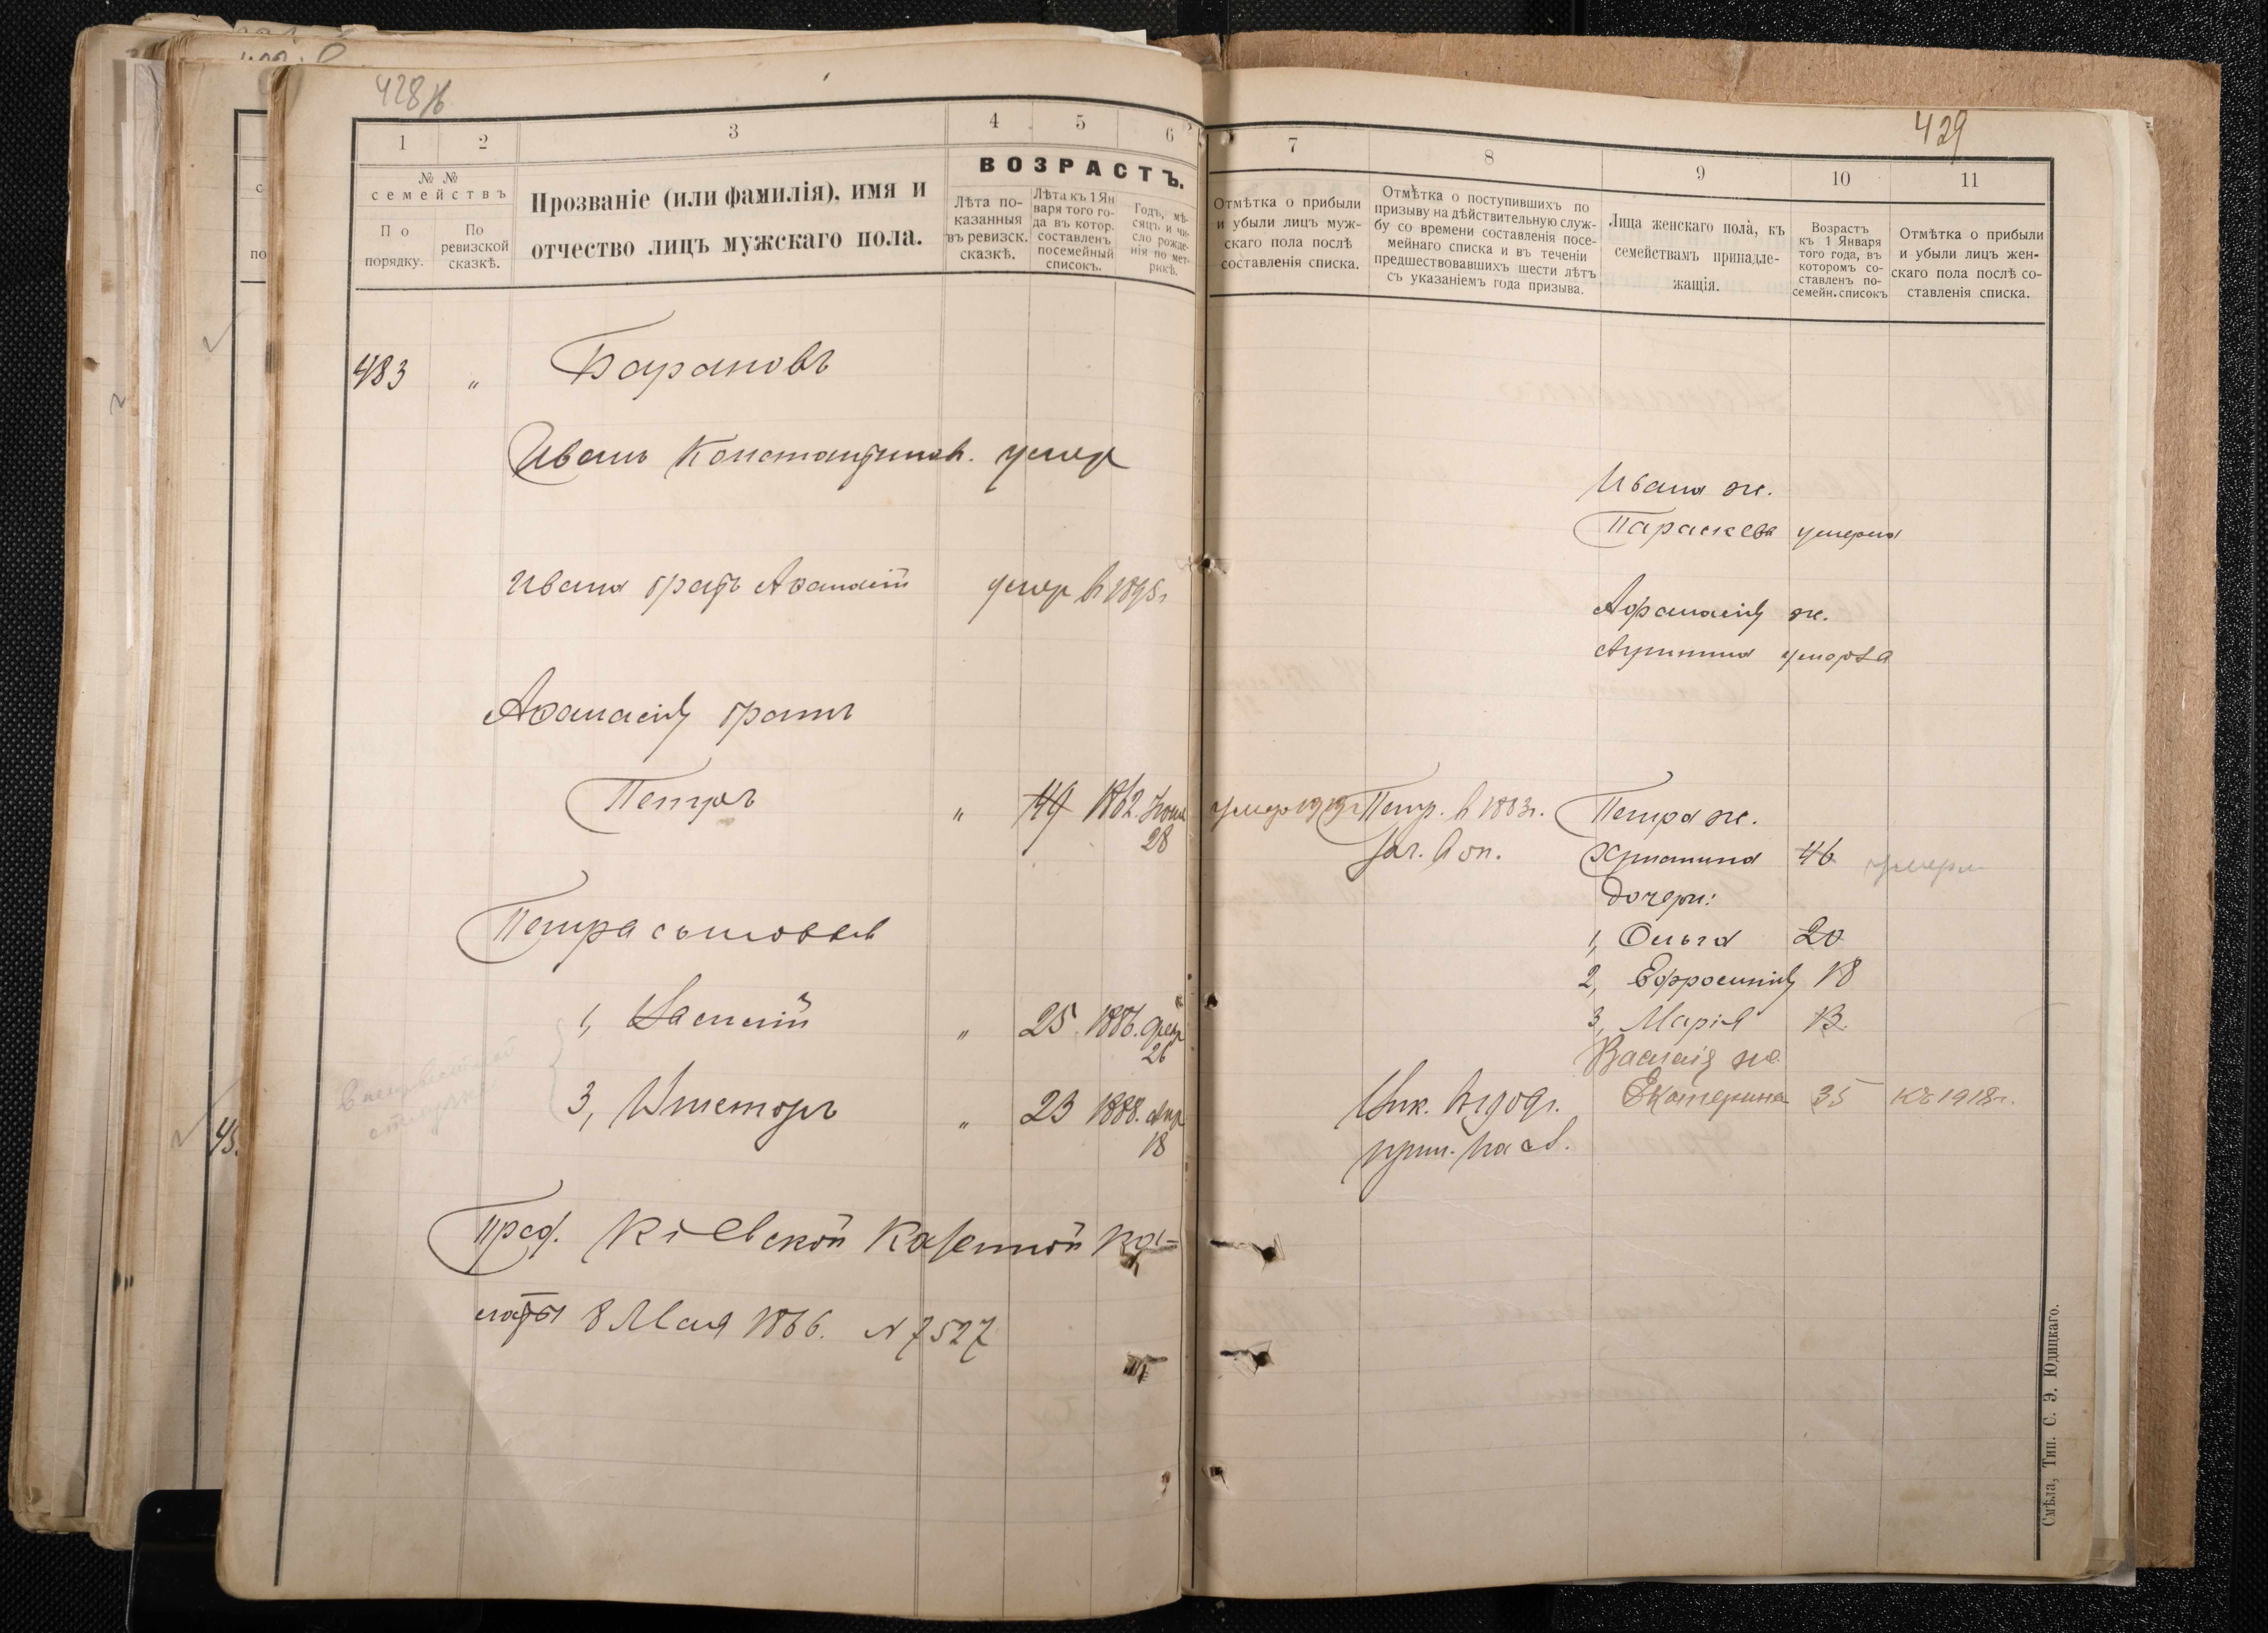 428 б
1 2 3 4 5 6
№ №
семействъ
По порядку.
По ревизской сказкѣ.
Прозваніе (или фамилія), имя и
отчество лицъ мужскаго пола.
ВОЗРАСТЪ.
Лѣта по-
казанныя
въ ревизск.
сказкѣ.
Лѣта къ 1 Ян
варя того го-
да въ котор.
составленъ
посемейный
списокъ.
Годъ, мѣ-
сяцъ и чи-
сло рожде-
нія по мет-
рикѣ.
483 " Барановъ
Иванъ Константинов. умер
Ивана братъ Аѳанасій умер в 1895 г
Аѳанасія братъ
Петръ " 49 1862. Іюня
28
Петра сыновья
1, Василій " 25 1886. Февр
26
3, Викторъ " 23 1888. Апр
18
Пред. Кіевской Казенной Ка-
латы 8 Мая 1866. N 7527
429
7 8 9 10 11
Отмѣтка о прибыли
и убыли лицъ муж-
скаго пола послѣ
составленія списка.
Отмѣтка о поступившихъ по
призыву на дѣйствительную служ-
бу со времени составленія посе-
мейнаго списка и въ теченіи
предшествовавшихъ шести лѣтъ
съ указаніемъ года призыва.
Лица женскаго пола, къ
семействамъ принадле-
жащія.
Возрастъ
къ 1 Января
того года, въ
которомъ со-
ставленъ по-
семейн. списокъ
Отмѣтка о прибыли
и убыли лицъ жен-
скаго пола послѣ со-
ставленія списка.
Ивана ж.
Параскева умерла
Афанасія ж.
умерла
умер 1919 г Петр. в 1883 г. Петра ж.
зач. в оп. Христина 46 умерла
дочери:
1, Ольга 20
2, Ефросинія 18
3, Марія 13.
Василія ж.
Екатерина 35 къ 1918 г.
Смѣла, Тип. С. Э. Юдицкаго.